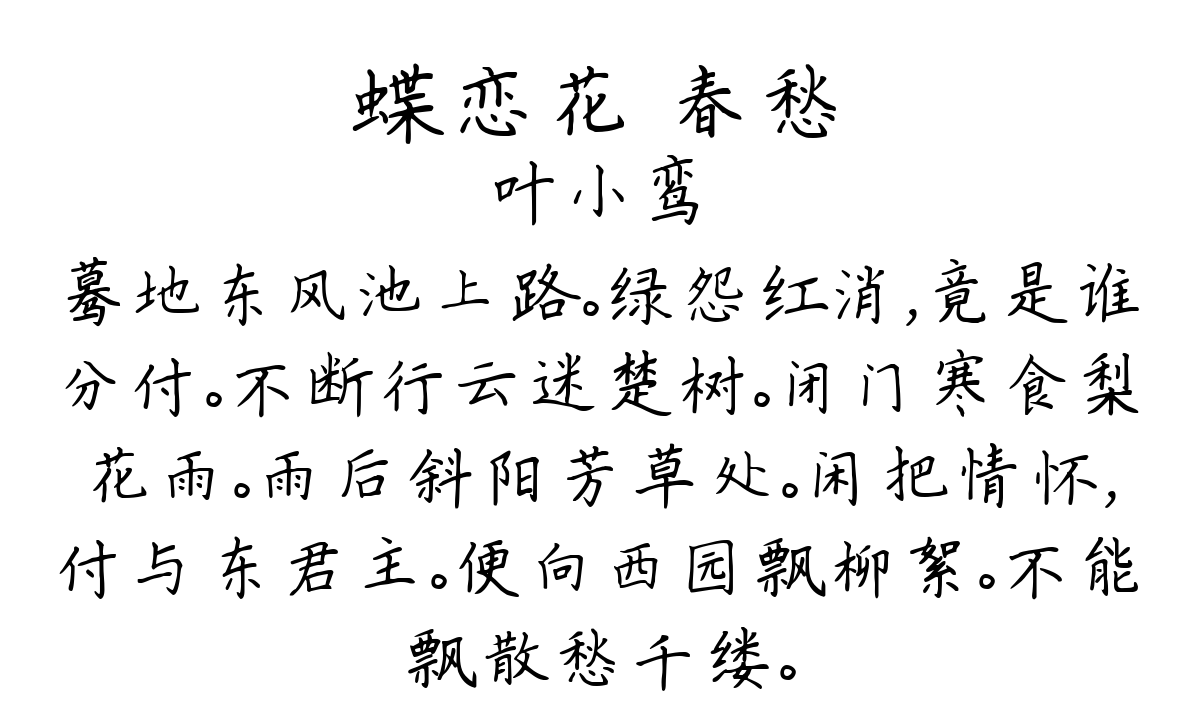 蝶恋花 春愁
叶小鸾
蓦地东风池上路。绿怨红消,竟是谁
分付。不断行云迷楚树。闭门寒食梨
花雨。雨后斜阳芳草处。闲把情怀,
付与东君主。便向西园飘柳絮。不能
飘散愁千缕。